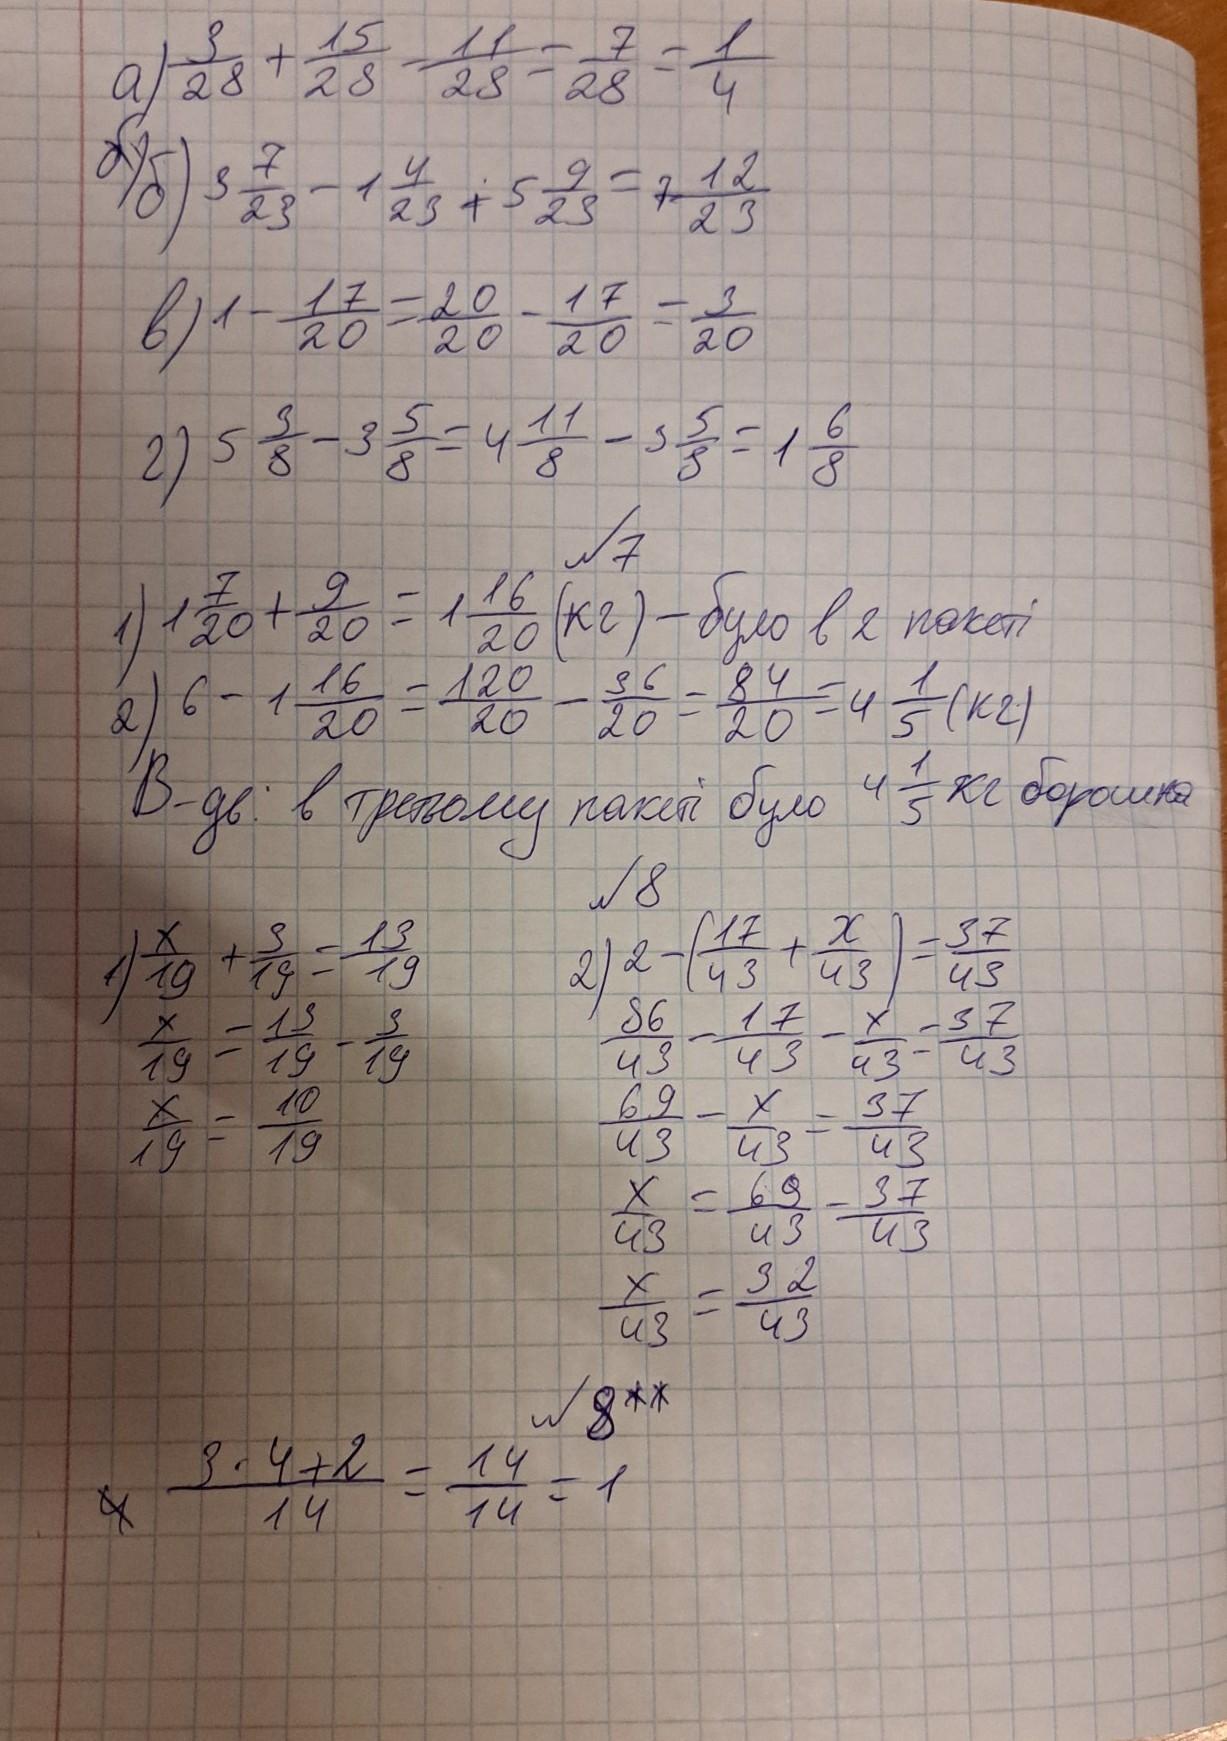 а) 3/28 + 15/28 - 11/28 = 7/28 = 1/4
б) 3 7/23 - 1 4/23 + 5 9/23 = 7 12/23
в) 1 - 17/20 = 20/20 - 17/20 = 3/20
г) 5 3/8 - 3 5/8 = 4 11/8 - 3 5/8 = 1 6/8
№7
1) 1 7/20 + 9/20 = 1 16/20 (кг) - було в 2 пакеті
2) 6 - 1 16/20 = 120/20 - 36/20 = 84/20 = 4 1/5 (кг)
В-дь: в третьому пакеті було 4 1/5 кг борошна
№8
1) x/19 + 3/19 = 13/19
x/19 = 13/19 - 3/19
x/19 = 10/19
2) 2 - (17/43 + x/43) = 37/43
86/43 - 17/43 - x/43 = 37/43
69/43 - x/43 = 37/43
x/43 = 69/43 - 37/43
x/43 = 32/43
№8**
(3·4+2)/14 = 14/14 = 1